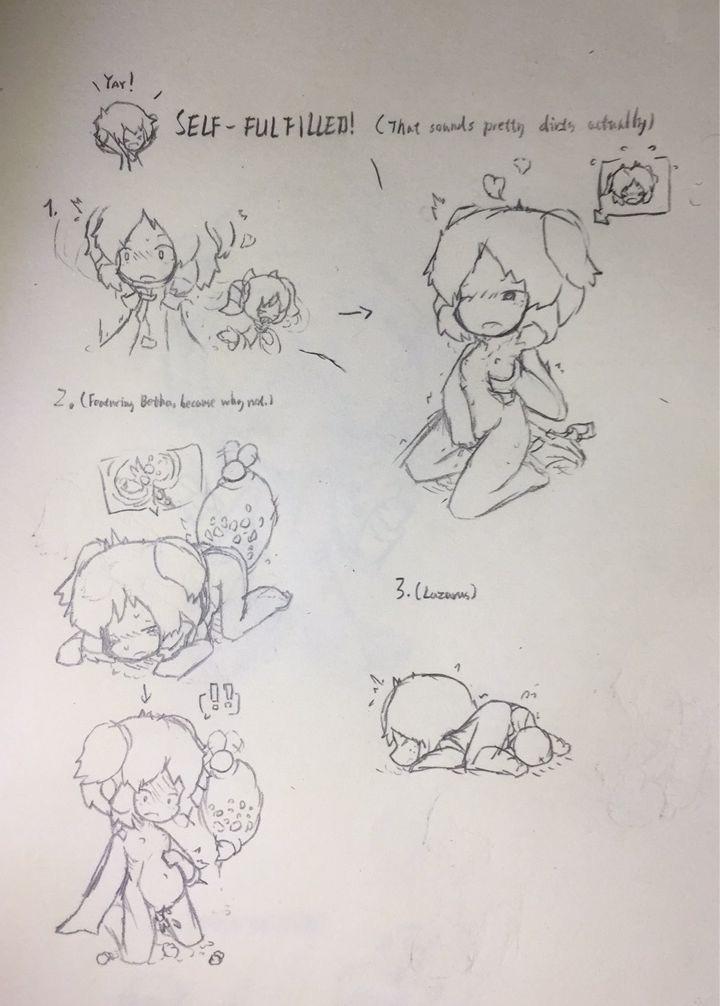 YAY!
SELF-FULFILLED! (That sounds pretty dirty actually)
1.
2. (Featuring Betha, because why not.)
!!
3. (Lazarus)